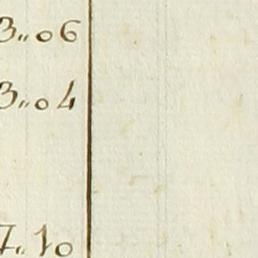 3,,06
3,,04
7,,10